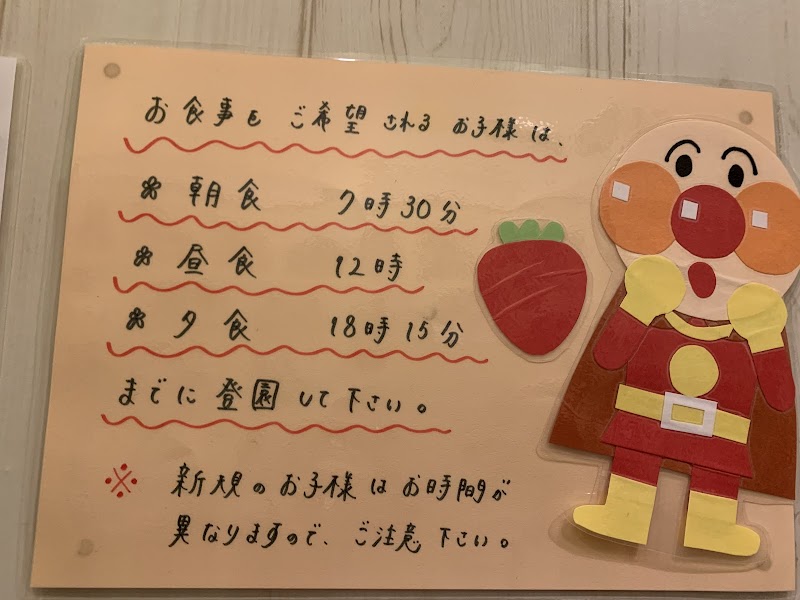 お食事をご希望されるお子様は、
✽ 朝食 7時30分
✽ 昼食 12時
✽ 夕食 18時15分
までに登園して下さい。
※ 新規のお子様はお時間が
異なりますので、ご注意下さい。